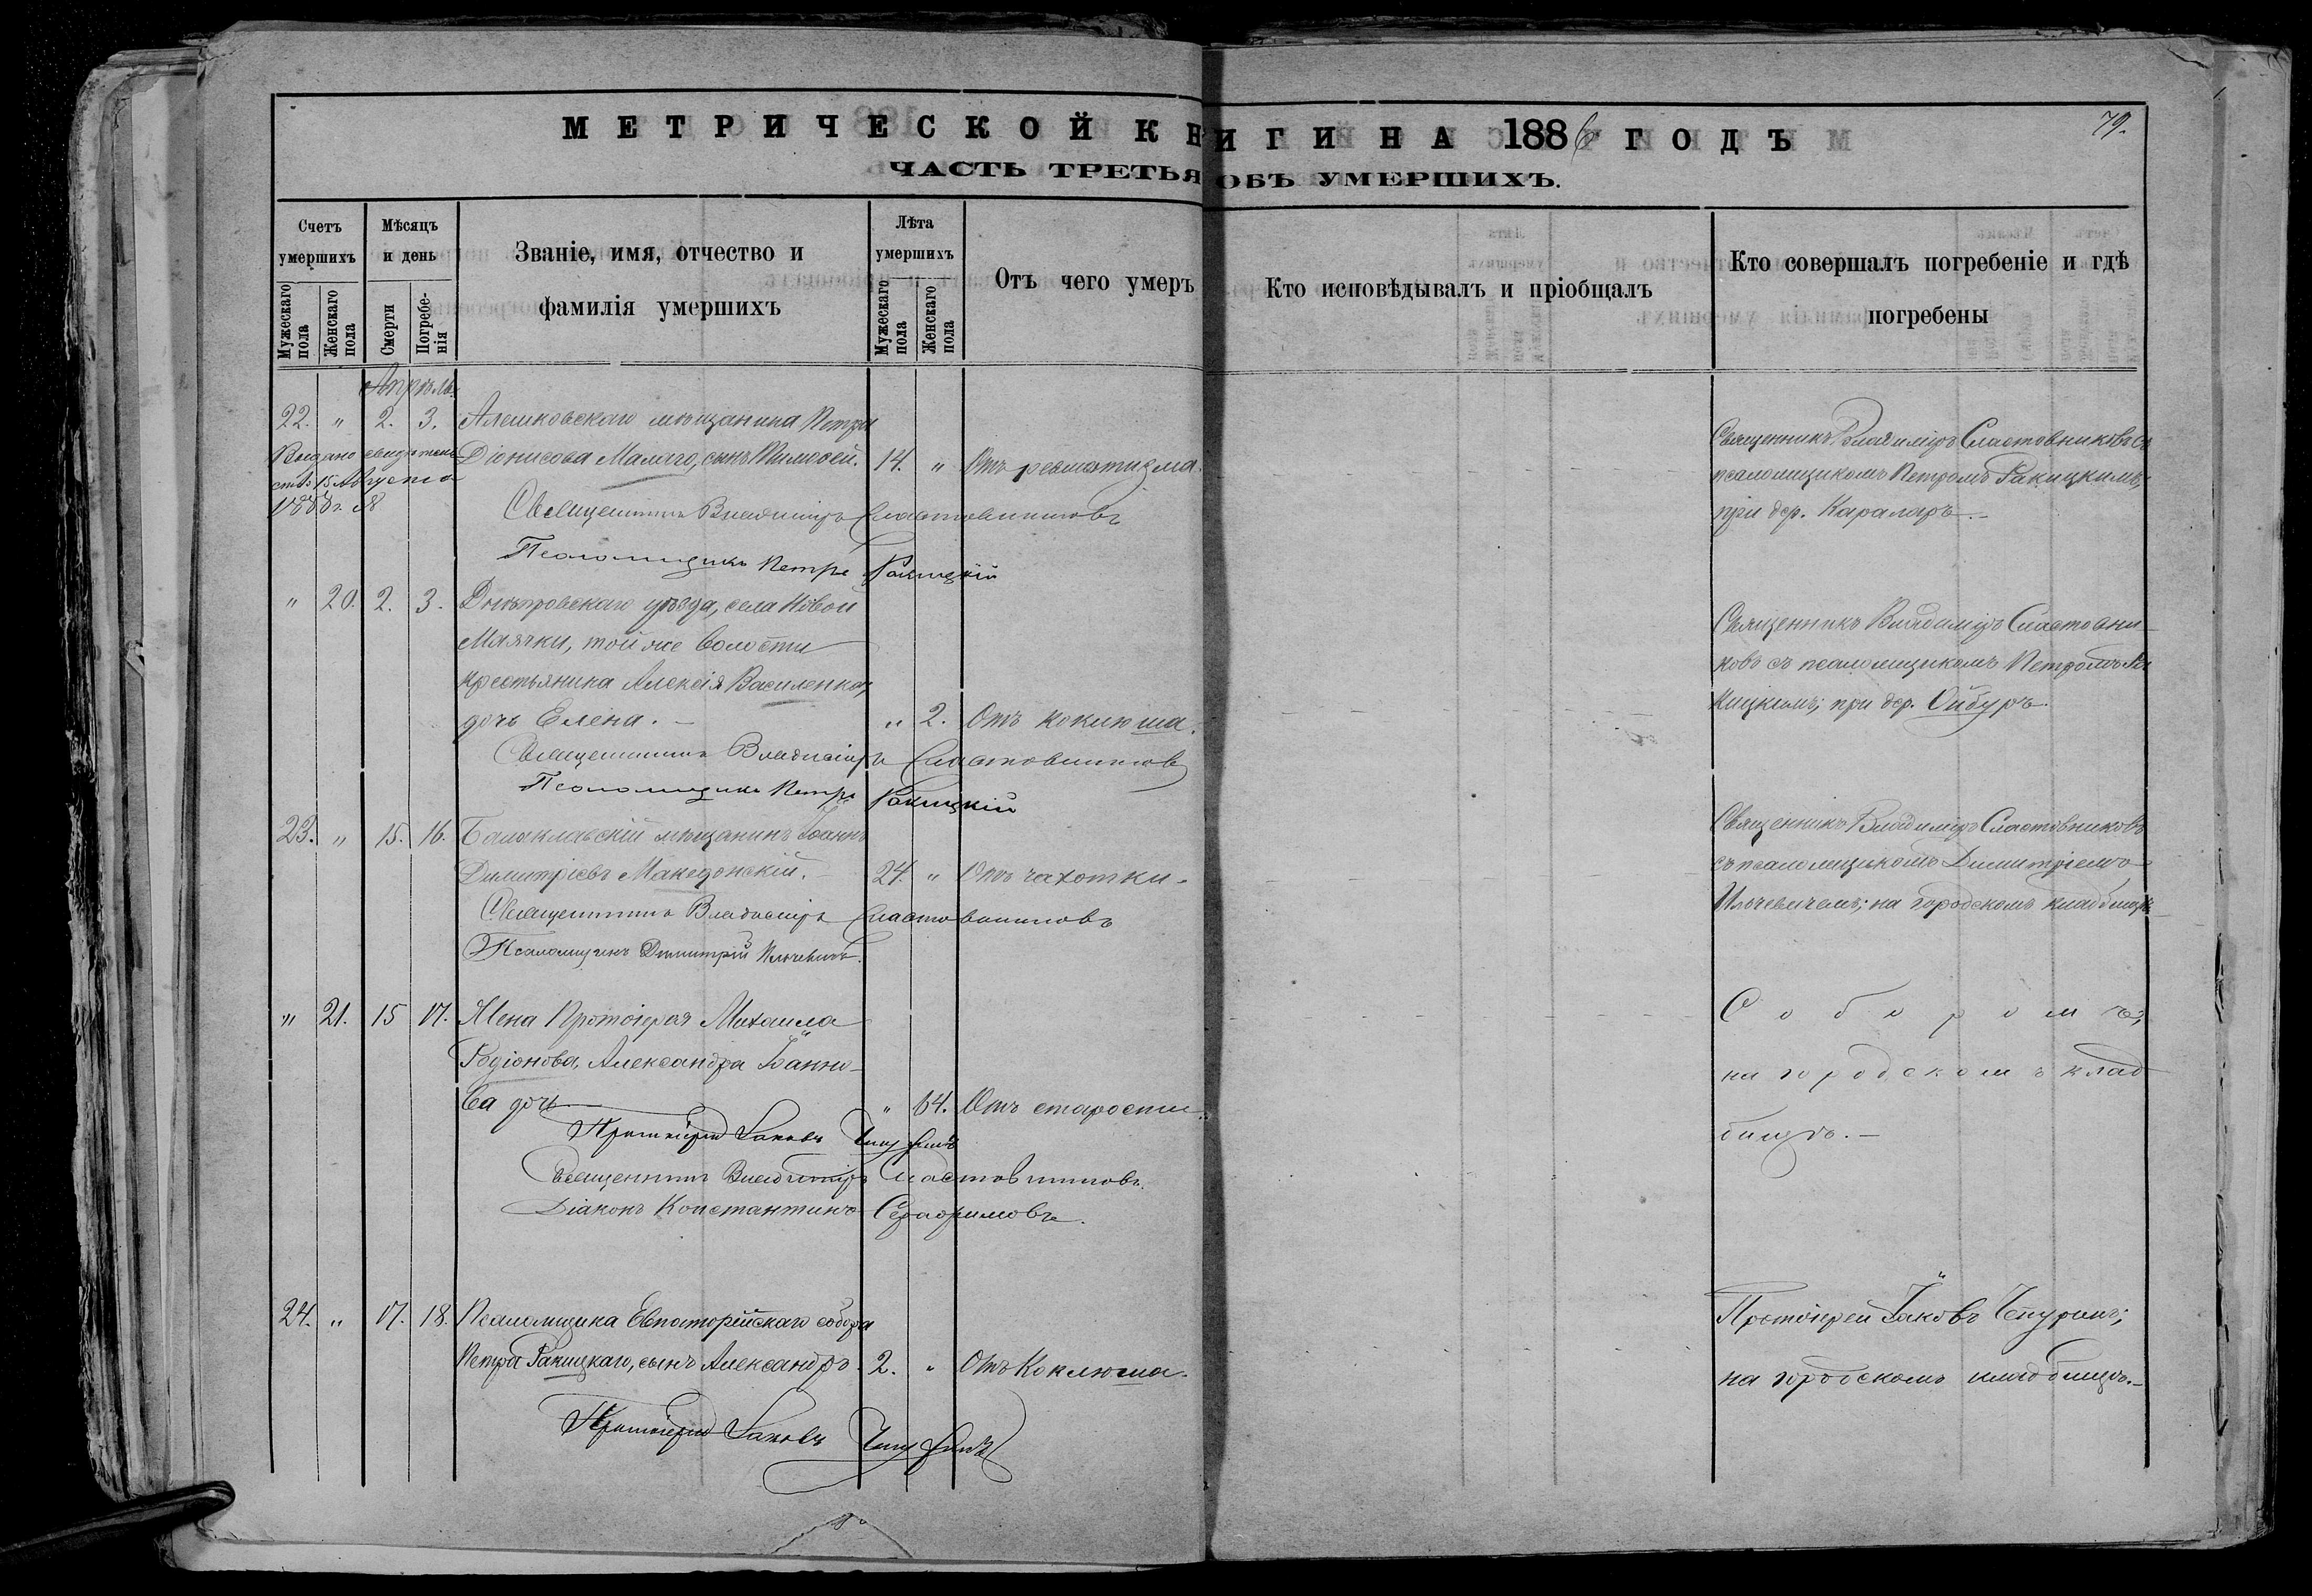 МЕТРИЧЕСКОЙ КНИГИ НА 1886 ГОДЪ
79.
ЧАСТЬ ТРЕТЬЯ ОБЪ УМЕРШИХЪ.
Счетъ умершихъ
Мѣсяцъ и день
Званіе, имя, отчество и фамилія умершихъ
Лѣта умершихъ
Отъ чего умеръ
Кто исповѣдывалъ и пріобщалъ
Кто совершалъ погребеніе и гдѣ погребены
Мужескаго пола
Женскаго пола
Смерти
Погребенія
Мужескаго пола
Женскаго пола
Апрѣль.
22. " 2. 3. Алешковскаго мѣщанина Петра
Діонисова Малаго, сынъ Тимоѳей. 14. " Отъ ревматизма.
Выдано свидѣтель
ство 15 Августа
Священникъ Владиміръ Сластовниковъ съ
псаломщикомъ Петромъ Ракицкимъ;
при дер. Караларъ.-
Священникъ Владиміръ Сластовниковъ
Псаломщикъ Петръ Ракицкій
" 20. 2. 3. Днѣпровскаго уѣзда, села Новой
Маячки, той же волости
крестьянина Алексія Василенка,
дочь Елена. - " 2. Отъ коклюша.
Священникъ Владиміръ Сластовни-
ковъ съ псаломщикомъ Петромъ Ра
кицкимъ; при дер. Ойбуръ.
Священникъ Владиміръ Сластовниковъ
Псаломщикъ Петръ Ракицкій
23. " 15. 16. Балаклавскій мѣщанинъ Іоаннъ
Димитріевъ Македонскій. - 24. " Отъ чахотки -
Священникъ Владиміръ Сластовниковъ
съ псаломщикомъ Димитріемъ
Ильчевичемъ; на городскомъ кладбищѣ
Священникъ Владиміръ Сластовниковъ
Псаломщикъ Димитрій Ильчевичъ.
" 21. 15 17. Жена Протоіерея Михаила
Родіонова, Александра Іоанно-
ва дочь " 64. Отъ старости.
Соборомъ;
на городскомъ клад
бищѣ. -
Протоіерей Іаковъ Чепуринъ
Священникъ Владиміръ Сластовниковъ.
Діаконъ Константинъ Серафимовъ.
24. " 17. 18. Псаломщика Евпаторійскаго собора
Петра Ракицкаго, сынъ Александръ. 2. " Отъ Коклюша.
Протоіерей Іаковъ Чепуринъ;
на городскомъ кладбищѣ.-
Протоіерей Іаковъ Чепуринъ